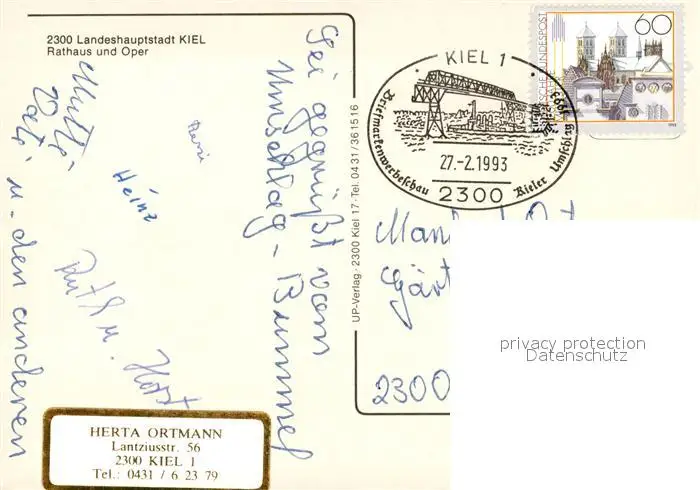 2300 Landeshauptstadt KIEL
Rathaus und Oper
Sei gegrüßt vom
Umschlag-Bummel
Mutti,
Vati
u. den anderen
Heinz
Ruth u. Horst
HERTA ORTMANN
Lantziusstr. 56
2300 KIEL 1
Tel.: 0431 / 6 23 79
UP-Verlag · 2300 Kiel 17 · Tel. 0431/361516
KIEL 1
Briefmarkenwerbeschau Kieler Umschlag 1993
27.-2.1993
2300
DEUTSCHE BUNDESPOST
60
2300
privacy protection
Datenschutz